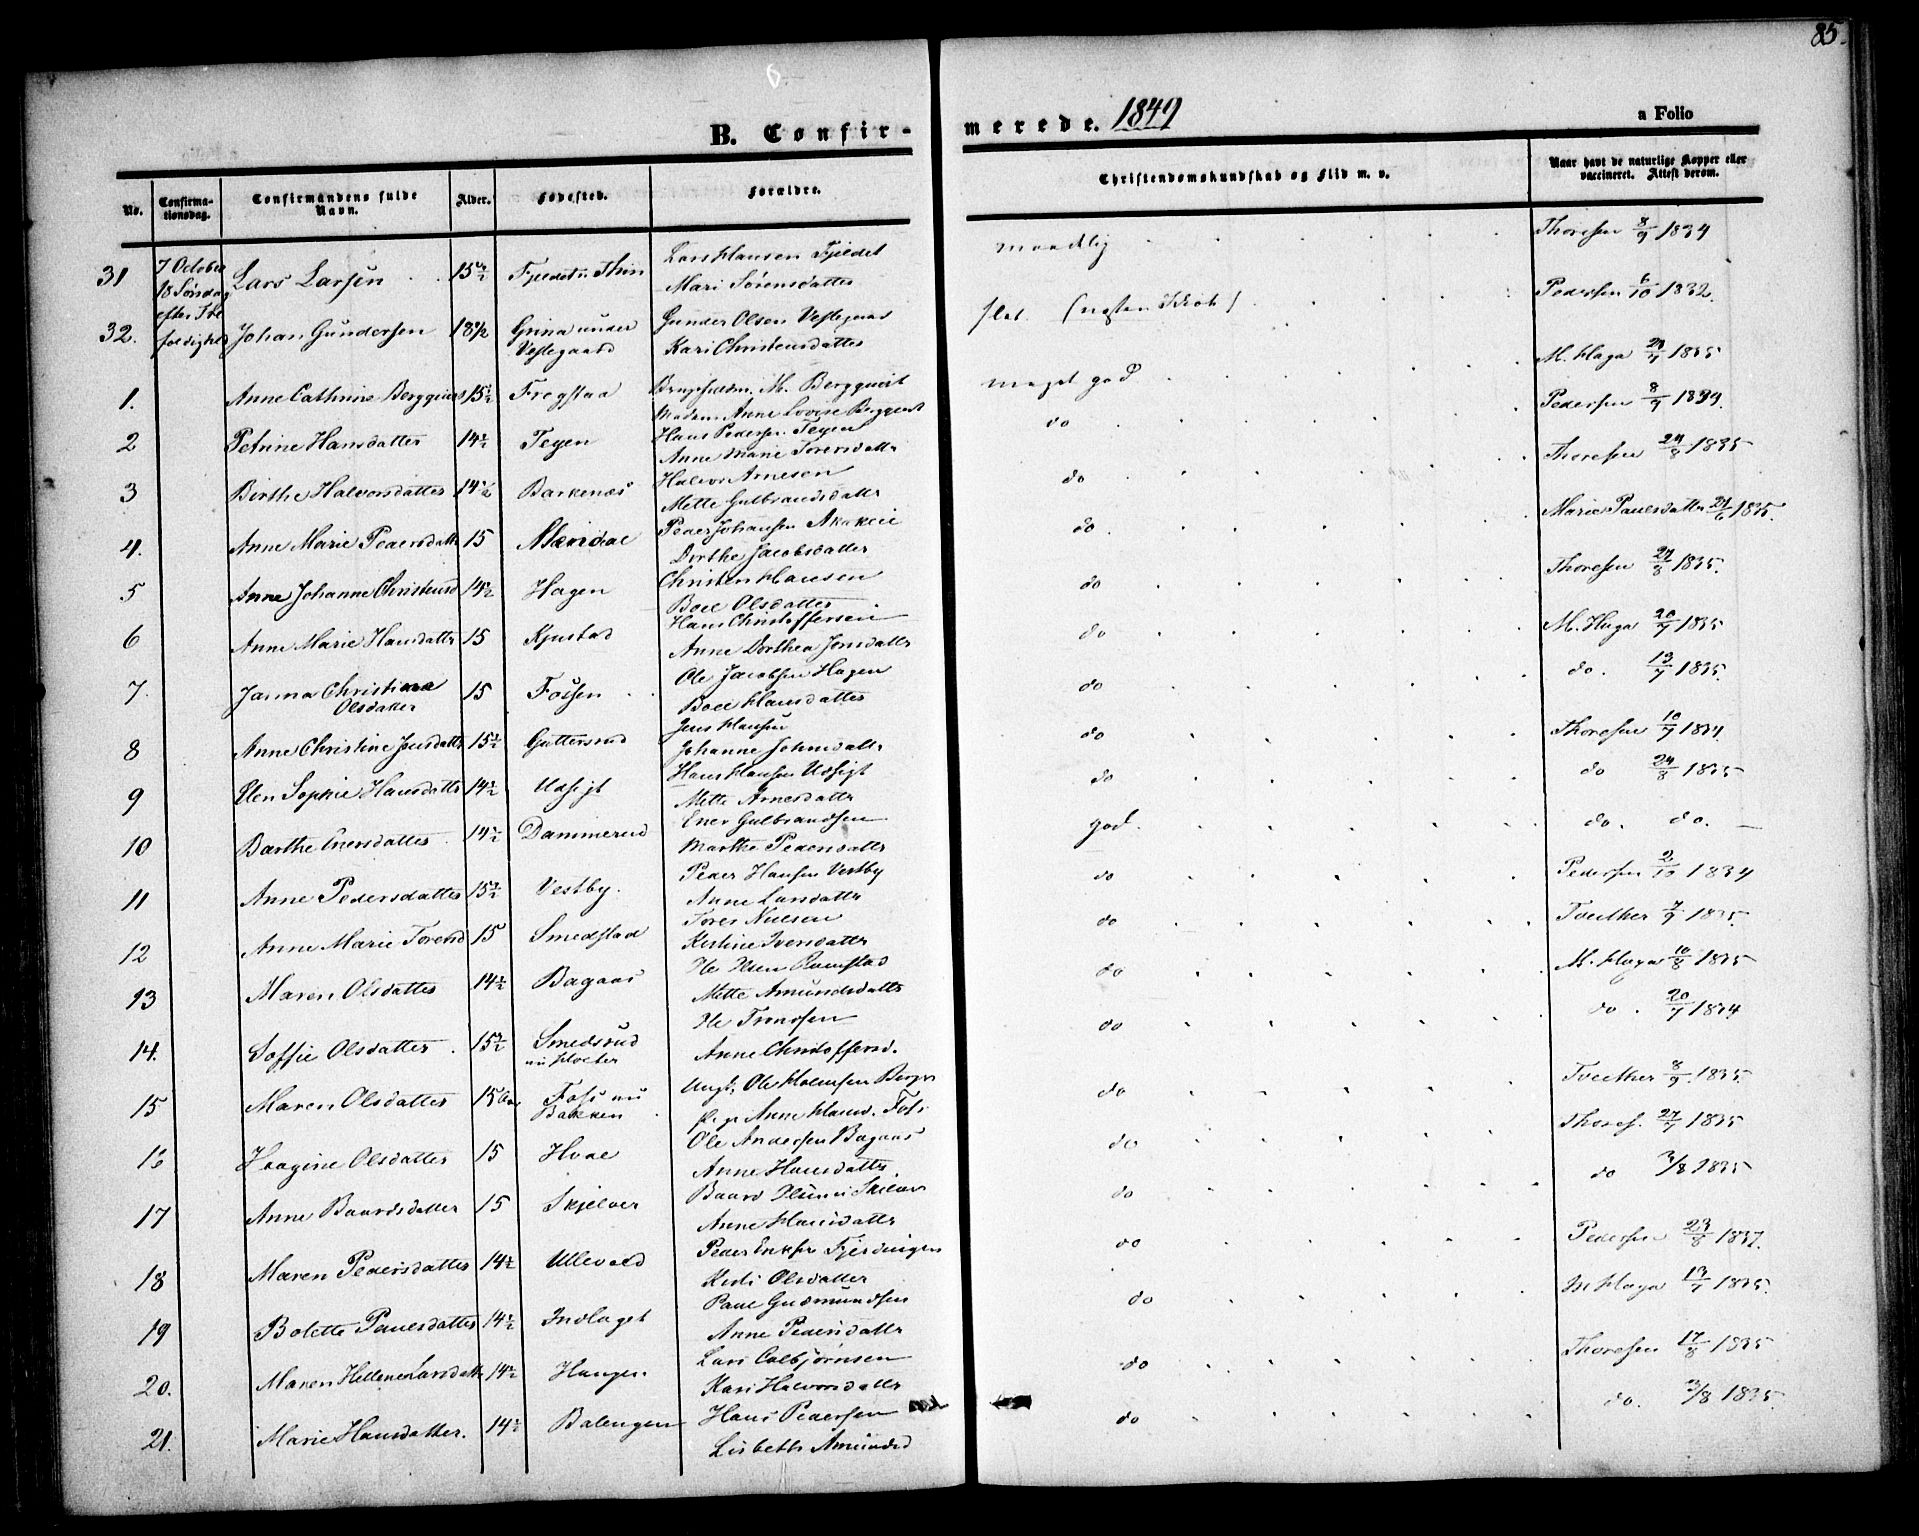 85.
B. Confir-
merede. 1849
a Folio
No.
Confirma-
tionsdag.
Confirmandens fulde
Navn.
Alder.
Fødested.
Forældre.
Christendomskundskab og Flid m. v.
Naar havt de naturlige Kopper eller
vaccineret. Attest derom.
7 October
18 Søndag
efter Tre
foldighed
31 Lars Larsen 15 1/2 Lars Hansen Fjeldet
Mari Sørensdatter
maadelig Thoresen 8/9 1834
32. Johan Gundersen 18 1/2 Grina under
Vestegaard
Gunder Olsen Vestegaard
Kari Christensdatter
slet. Pedersen 6/10 1832.
1. Anne Cathrine Bergquist 15 1/2 Frogstaa M. Bergquist
Madm. Anne Lovise Bergquist
meget god M. Haga 1835
2 Petrine Hansdatter 14 1/2 Teyen Hans Pedersen Teyen
Anne Marie Torersdattr
do Pedersen 8/9 1834.
3 Birthe Halvorsdatter 14 1/2 Barkenæs Halvor Arnesen
Mette Gulbrandsdattr
do Thoresen 24/8 1835
4. Anne Marie Pedersdattr 15 Peder Johansen
Dorthe Jacobsdatter
do. Marie Pauesdattr 24/6 1835.
5 Anne Johanne Christensd 14 1/2 Hagen Christen Hansen
Boel Olsdatter
do Thoresen 24/8 1835.
6 Anne Marie Hansdattr 15 Kjustad Hans Christoffersen
Anne Dorthea Jensdattr
do M. Haga 20/7 1835
7. Janna Christiana
Olsdatter
15 Fossen Ole Jacobsen Hagen
Boel Hansdatter
do do. 13/7 1835.
8 Anne Christine Jensdattr 15 1/2 Guttersrud Jens Hansen
Johanne Johnsdattr
do Thoresen 10/9 1834.
9 Elen Sophie Hansdattr 14 1/2 Udsigt Hans Hansen Udsigt
Mette Arnesdattr
do do 24/8 1835
10 Barthe Enersdatter 14 1/2 Dammerud Ener Gulbrandsen
Marthe Pedersdattr
god. do. do. —
11 Anne Pedersdatter 15 1/2 Vestby. Peder Hansen Vestby
Anne Larsdattr
do Pedersen 2/10 1834
12 Anne Marie Torersd 15 Smedstad Torer Nielsen
Kirstine Iversdattr
do Tveither 7/9 1835.
13 Maren Olsdatter 14 1/2 Bagaas Ole Olsen Ramstad
Mette Amundsdattr
do M. Haga 10/8 1835
14. Soffie Olsdatter 15 1/2 Smedsrud
Ole Trondsen
Anne Christoffersd.
do do. 20/7 1834
15 Maren Olsdatter 15 Foss nu
Bakken
Ungk. Ole Halvorsen Berger
Pige Anne Hansd. Foss
do Tveither 8/9 1835.
16 Haagine Olsdatter 15 Hvae Ole Andersen Bagaas
Anne Hansdattr.
do Thores. 27/7 1835
17 Anne Baardsdatter 15 Skjelver Baard Olsen Skjelver
Anne Hansdattr
do do 3/8 1835
18 Maren Pedersdatter 14 1/2 Ullevold Peder Eriksen Fjerdingen
Kirsti Olsdatter
do Pedersen 23/8 1837.
19 Bolette Pauesdatter 14 1/2 Indlaget Paul Gudmundsen
Anne Pedersdattr
do M Haga 13/7 1835.
20. Maren Hellene Larsdattr 14 1/2 Haugen Lars Colbjørnsen
Kari Halvorsdattr
do Thoresen 17/8 1835
21. Marie Hansdatter. 14 1/2 Balengen Hans Pedersen
Lisbeth Amundsd
do do. 3/8 1835.